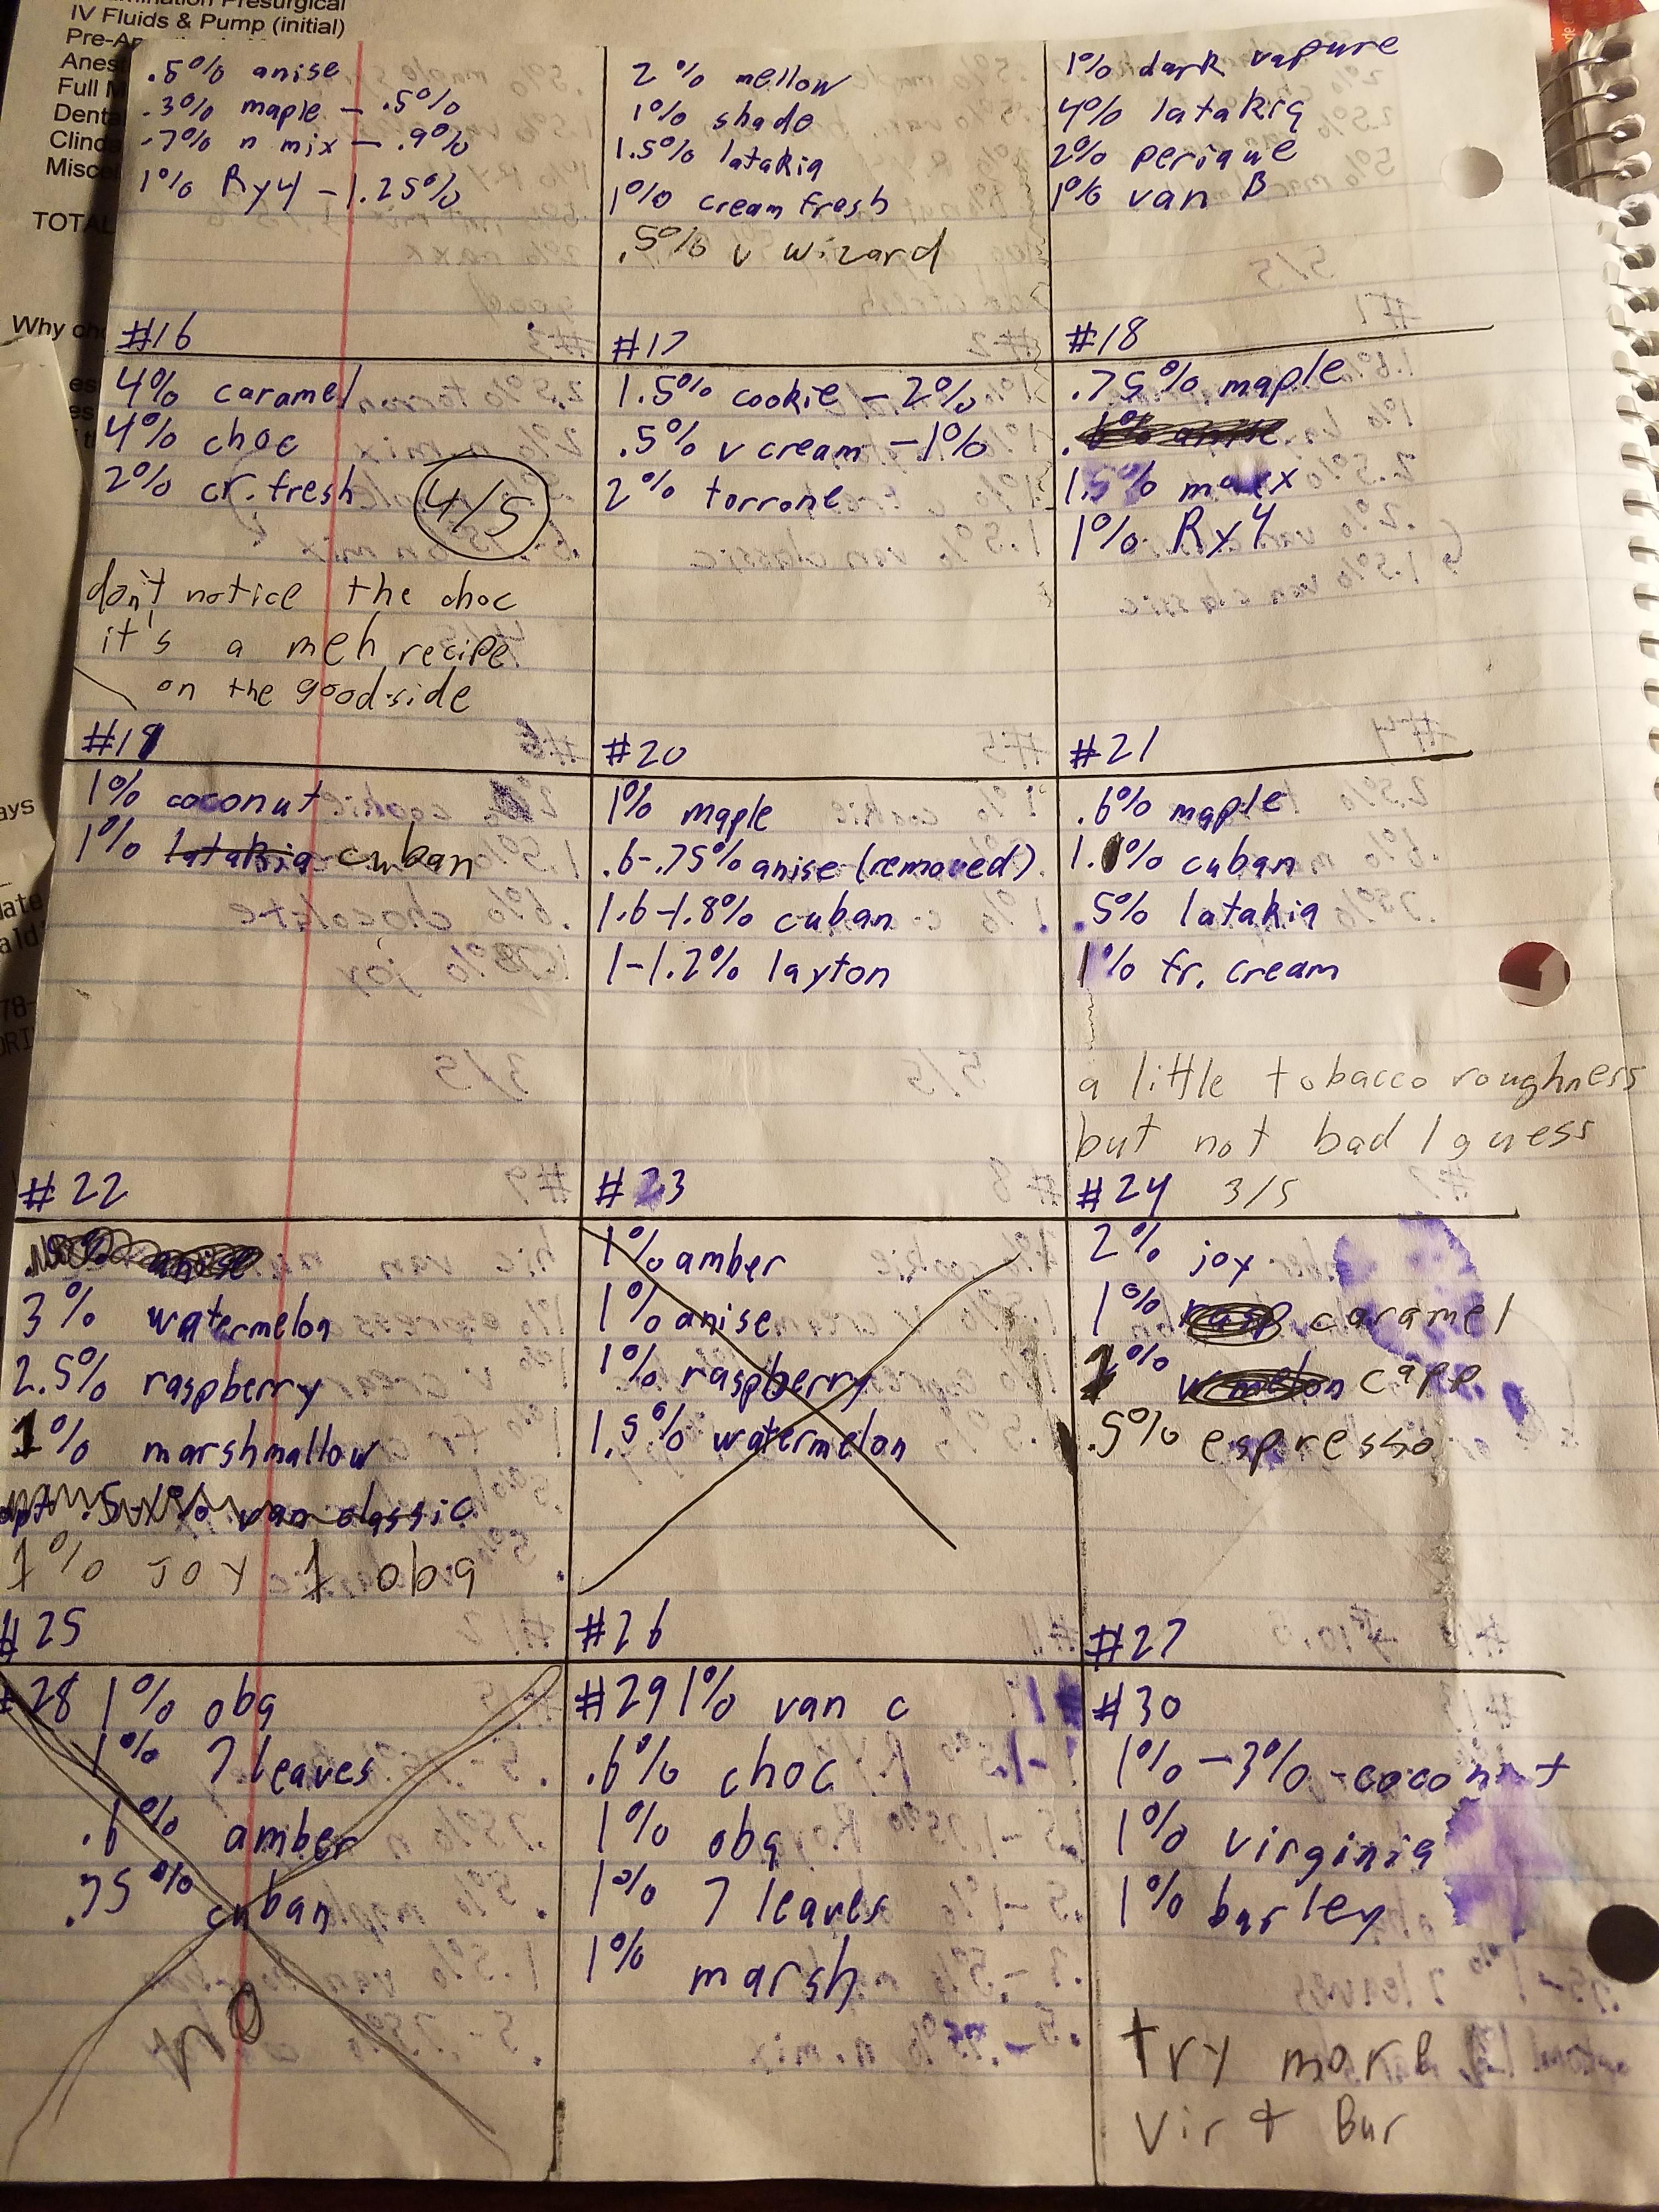 IV Fluids & Pump (initial)
TOTAL
.5% anise
.3% maple - .5%
.7% n mix - .9%
1% Ry4 - 1.25%
2% mellow
1% shade
1.5% latakia
1% cream fresh
.5% v wizard
1% dark vapure
4% latakia
2% perique
1% van B
#16
4% caramel
4% choc
2% cr. fresh
4/5
don't notice the choc
it's a meh recipe
on the good side
#17
1.5% cookie - 2%
.5% v cream - 1%
2% torrone
#18
.75% maple
1.5% maxx
1% Ry4
#19
1% coconut
1% latakia cuban
#20
1% maple
.6-.75% anise (removed)
1.6-1.8% cuban
1-1.2% layton
#21
.6% maple
1.0% cuban
.5% latakia
1% fr. cream
a little tobacco roughness
but not bad I guess
#22
3% watermelon
2.5% raspberry
1% marshmallow
van classic
1% joy 1 oba
#23
1% amber
1% anise
1% raspberry
1.5% watermelon
#24 3/5
2% joy
1% caramel
1% capp
.5% espresso
#25
#28 1% oba
1% 7 leaves
.6% amber
.75% cuban
NO
#26
#29 1% van c
.6% choc
1% oba
1% 7 leaves
1% marsh
#27
#30
1% - 3% - coconut
1% virginia
1% burley
try more
Vir + Bur